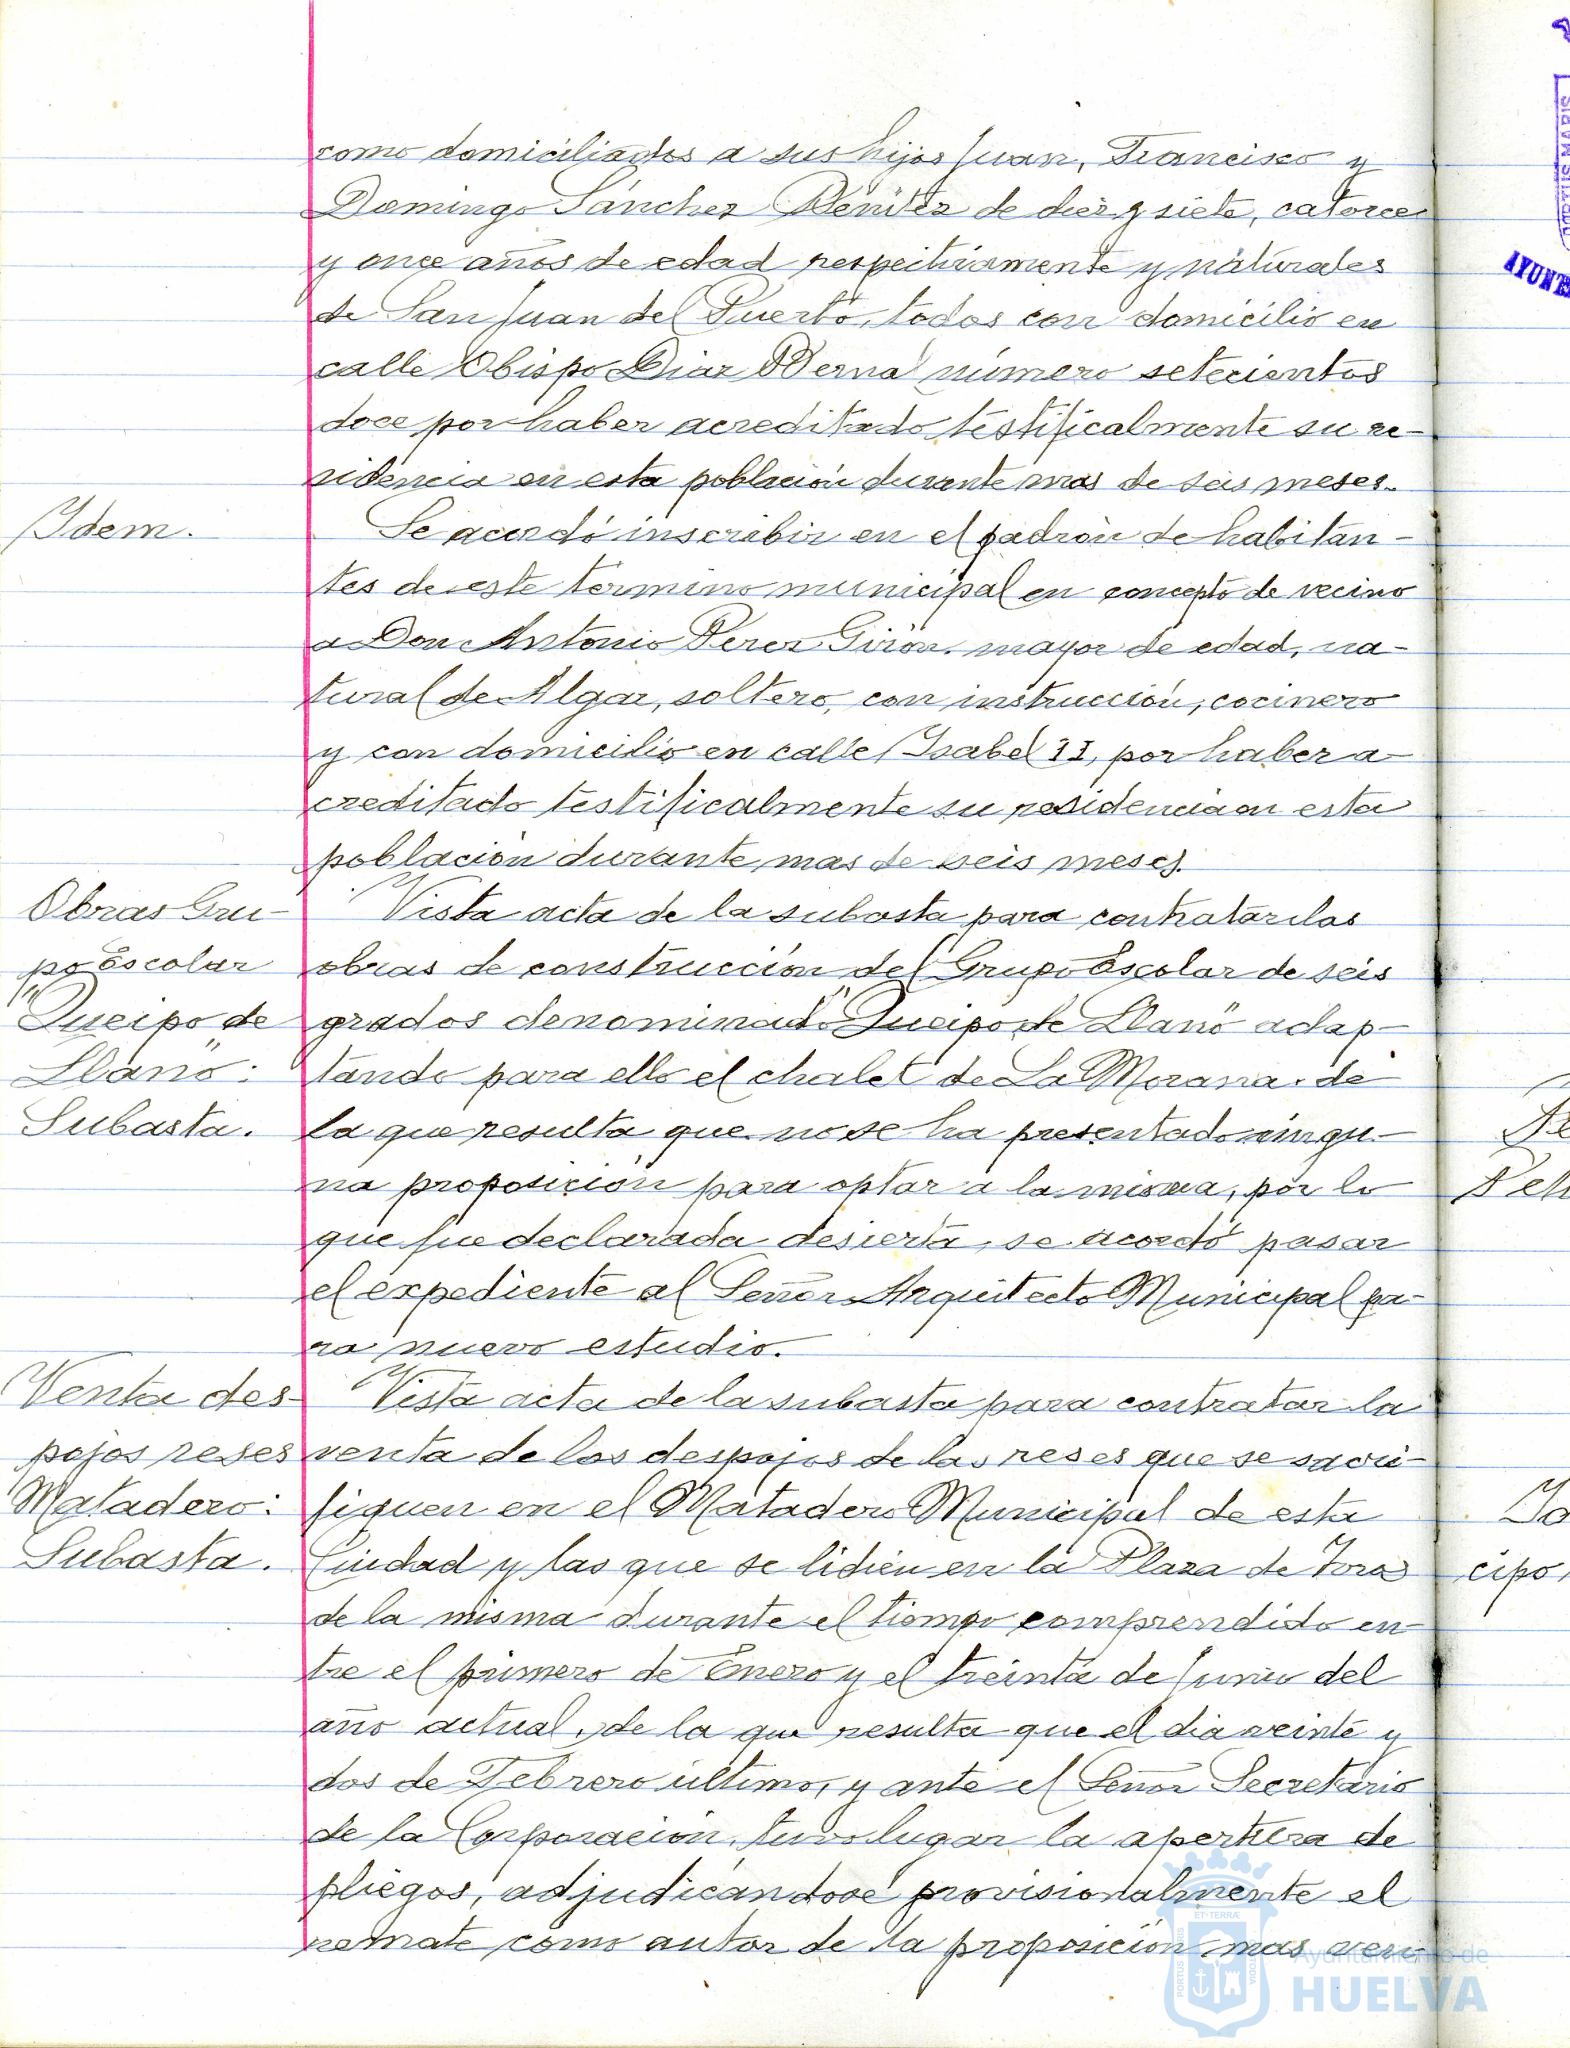 como domiciliados a sus hijos Juan, Francisco y
Domingo Sánchez Benítez de diez y siete, catorce
y once años de edad respectivamente y naturales
de San Juan del Puerto, todos con domicilio en
calle Obispo Diaz Bernal número setecientos
doce por haber acreditado testificalmente su re-
sidencia en esta población durante mas de seis meses.
Idem.
Se acordó inscribir en el padrón de habitan-
tes de este término municipal en concepto de vecino
a Don Antonio Perez Girón, mayor de edad, na-
tural de Algar, soltero, con instrucción, cocinero
y con domicilio en calle Isabel II, por haber a-
creditado testificalmente su residencia en esta
población durante mas de seis meses.
Obras Gru-
po Escolar
"Queipo de
Llano":
Subasta.
Vista acta de la subasta para contratar las
obras de construcción del Grupo Escolar de seis
grados denominado "Queipo de Llano" adap-
tando para ello el chalet de La Morana, de
la que resulta que no se ha presentado ningu-
na proposición para optar a la misma, por lo
que fue declarada desierta, se acordó pasar
el expediente al Señor Arquitecto Municipal pa-
ra nuevo estudio.
Venta des-
pojos reses
Matadero:
Subasta.
Vista acta de la subasta para contratar la
venta de los despojos de las reses que se sacri-
fiquen en el Matadero Municipal de esta
Ciudad y las que se lidien en la Plaza de Toros
de la misma durante el tiempo comprendido en-
tre el primero de Enero y el treinta de Junio del
año actual, de la que resulta que el dia veinte y
dos de Febrero último, y ante el Señor Secretario
de la Corporación, tuvo lugar la apertura de
pliegos, adjudicándose provisionalmente el
remate como autor de la proposición mas ven-
cipo,
Ayuntamiento de
HUELVA